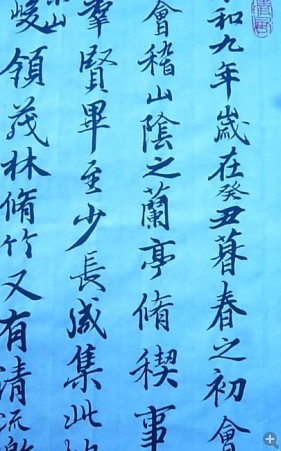 和九年歲在癸丑暮春之初會
會稽山陰之蘭亭脩稧事
羣賢畢至少長咸集此地
峻領茂林脩竹又有清流激